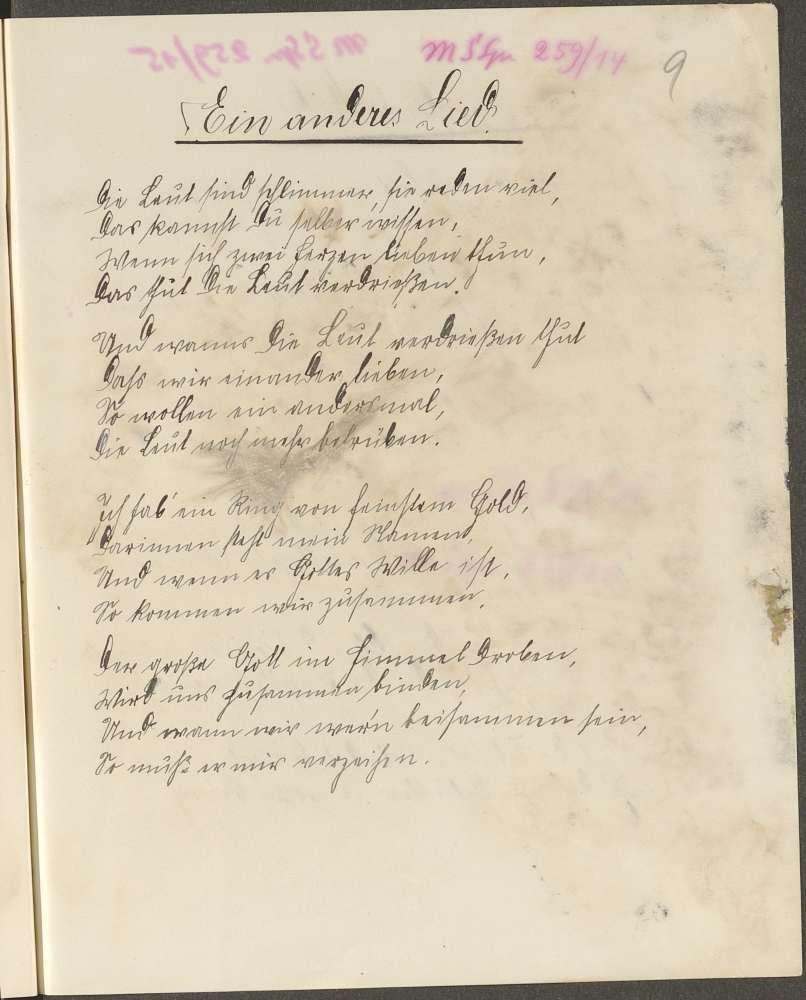 M S Gr 259/14
9
Ein anderes Lied.
Die Leut sind schlimmer, sie reden viel,
Das kannst Du selber wissen,
Wenn sich zwei Herzen lieben thun,
Das thut die Leut verdrießen.
Und wanns die Leut verdrießen thut
Dahs wir einander lieben,
So wollen ein andersmal,
Die Leut noch mehr betrüben.
Ich hab' ein Ring von feinstem Gold,
Darinnen steht mein Namen,
Und wenn es Gottes Wille ist,
So kommen wir zusammen.
Der große Gott im Himmel droben,
Wird uns zusammen binden,
Und wann wir wer'n beisammen sein,
So muß er mir verzeihen.